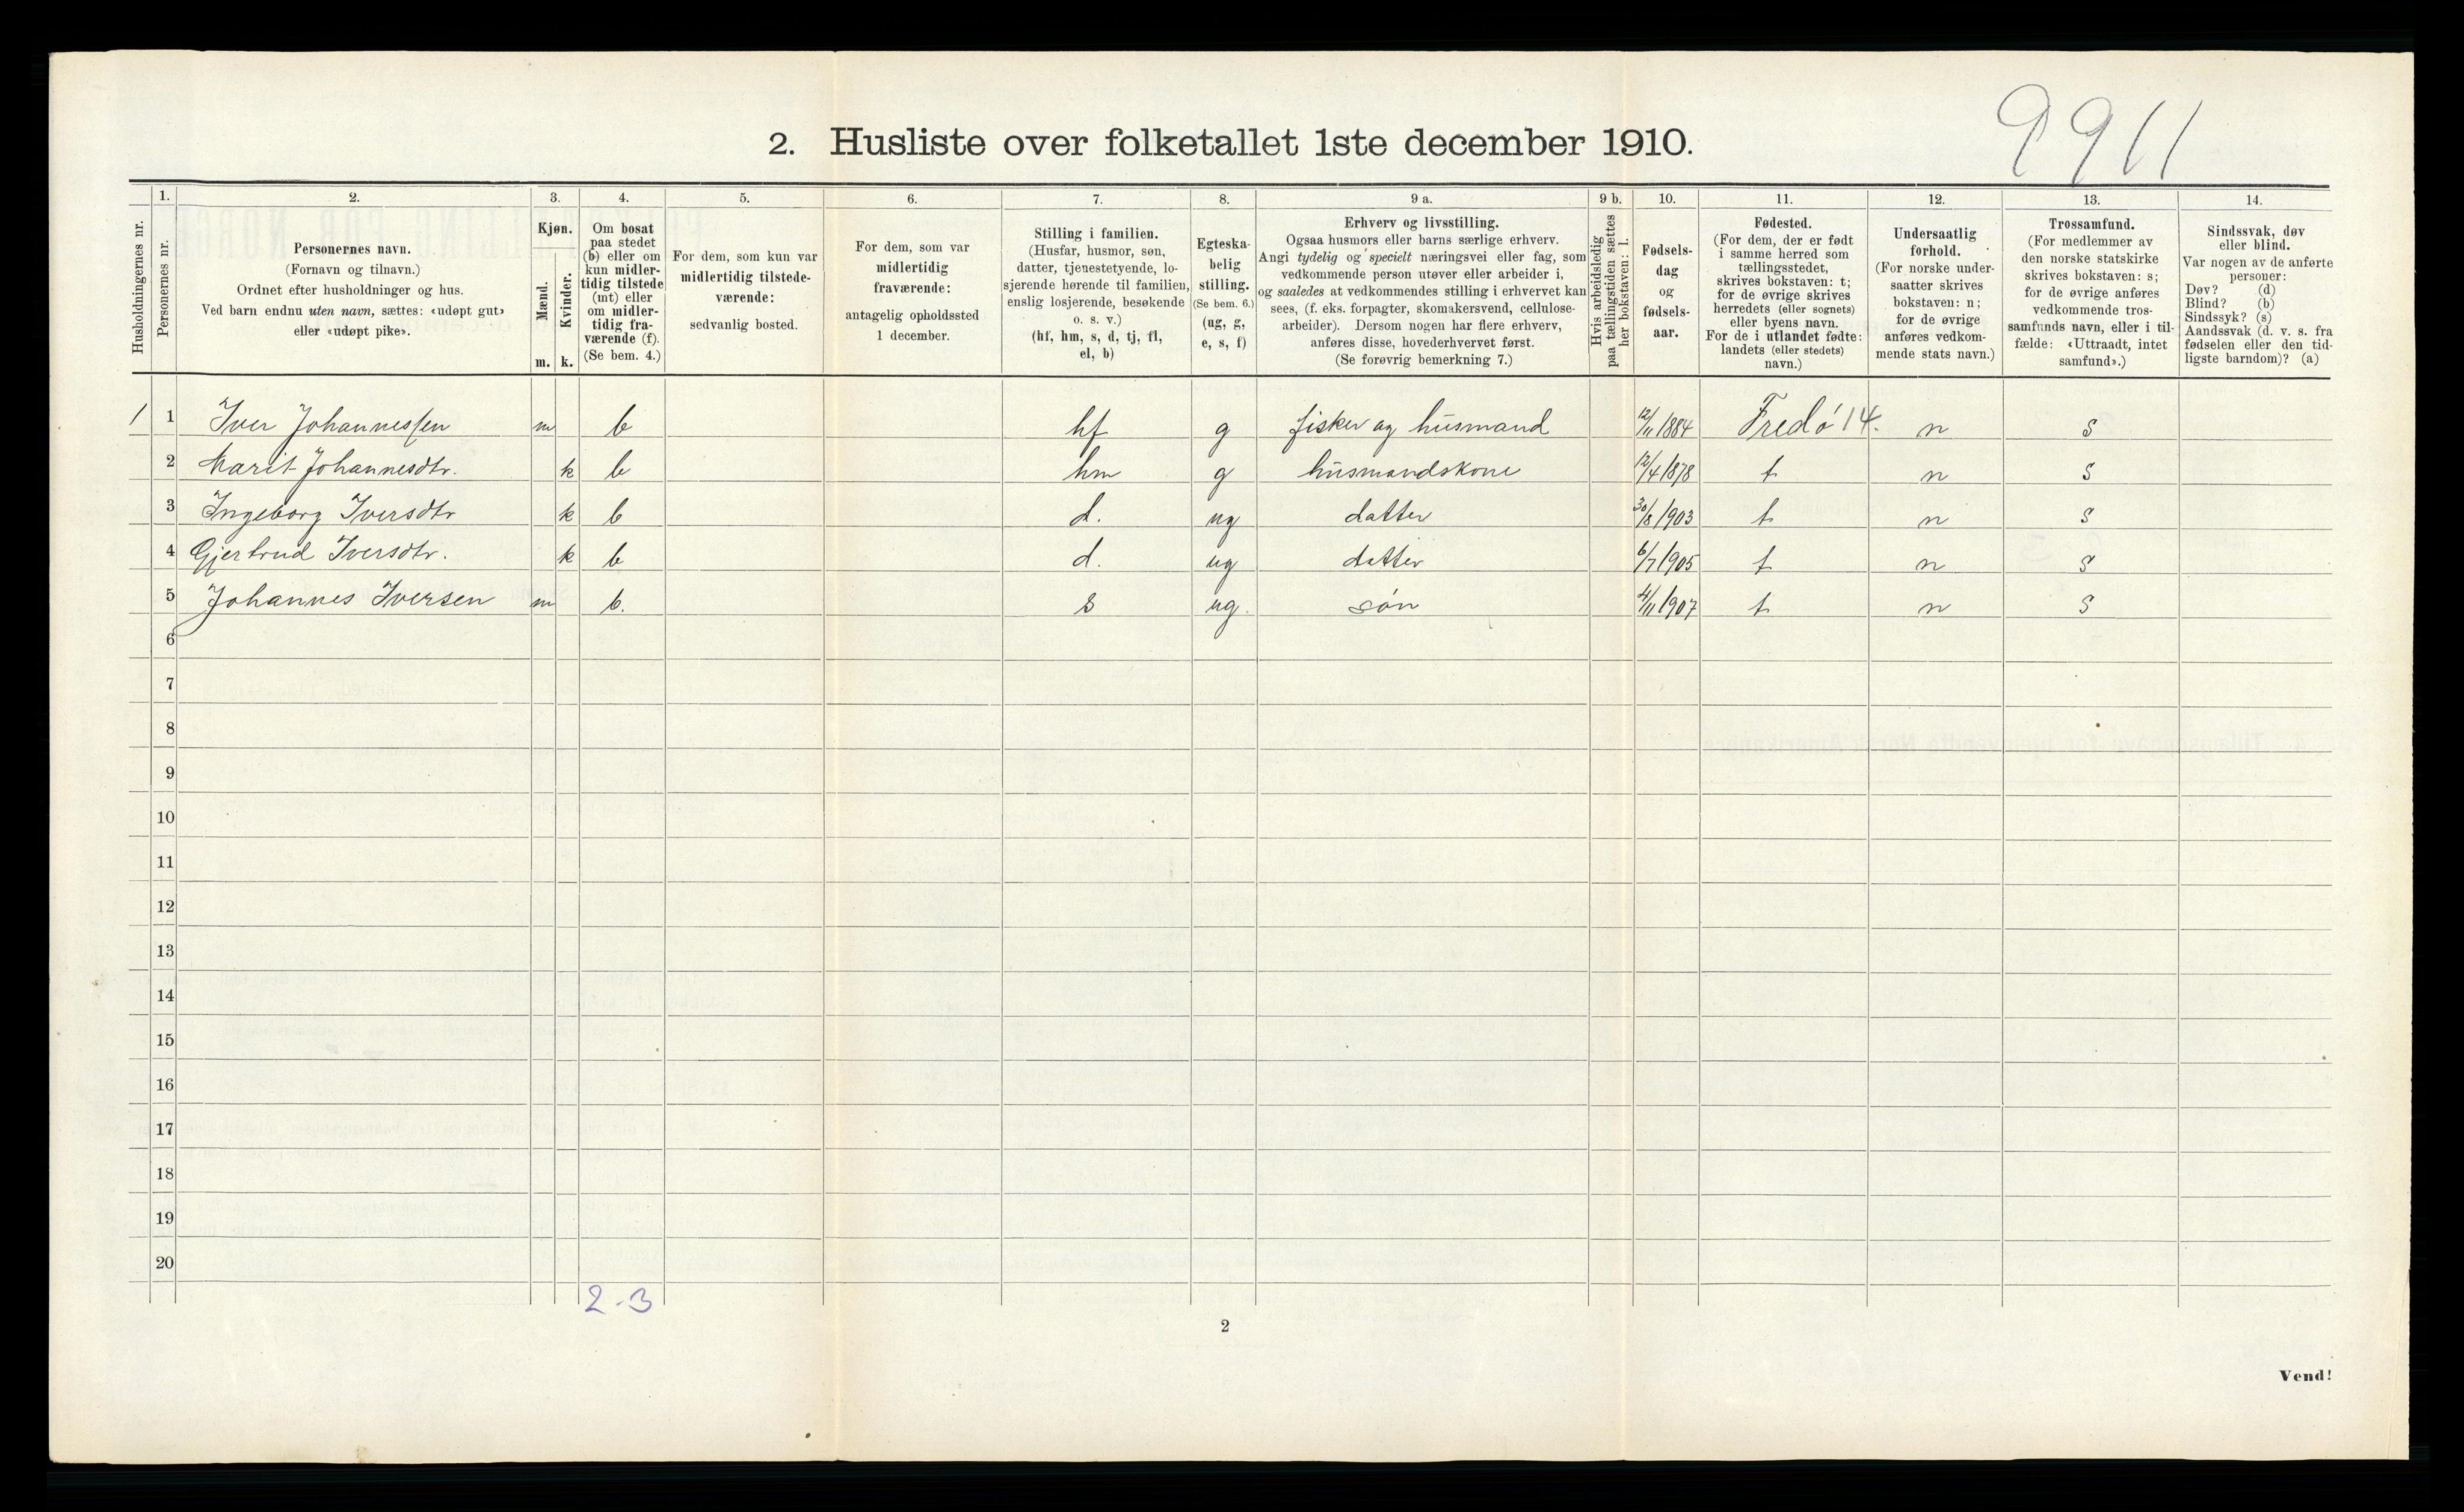 9911
2. Husliste over folketallet 1ste december 1910.
Husholdningernes nr.
1.
Personernes nr.
2.
Personernes navn.
(Fornavn og tilnavn.)
Ordnet efter husholdninger og hus.
Ved barn endnu uten navn, sættes: «udøpt gut»
eller «udøpt pike».
3.
Kjøn.
Mænd.
Kvinder.
m. k.
4.
Om bosat
paa stedet
(b) eller om
kun midler-
tidig tilstede
(mt) eller
om midler-
tidig fra-
værende (f).
(Se bem. 4.)
5.
For dem, som kun var
midlertidig tilstede-
værende:
sedvanlig bosted.
6.
For dem, som var
midlertidig
fraværende:
antagelig opholdssted
1 december.
7.
Stilling i familien.
(Husfar, husmor, søn,
datter, tjenestetyende, lo-
sjerende hørende til familien,
enslig losjerende, besøkende
o. s. v.)
(hf, hm, s, d, tj, fl,
el, b)
8.
Egteska-
belig
stilling.
(Se bem. 6.)
(ug, g,
e, s, f)
9 a.
Erhverv og livsstilling.
Ogsaa husmors eller barns særlige erhverv.
Angi tydelig og specielt næringsvei eller fag, som
vedkommende person utøver eller arbeider i,
og saaledes at vedkommendes stilling i erhvervet kan
sees, (f. eks. forpagter, skomakersvend, cellulose-
arbeider). Dersom nogen har flere erhverv,
anføres disse, hovederhvervet først.
(Se forøvrig bemerkning 7.)
9 b.
Hvis arbeidsledig
paa tællingstiden sættes
her bokstaven: l.
10.
Fødsels-
dag
og
fødsels-
aar.
11.
Fødested.
(For dem, der er født
i samme herred som
tællingsstedet,
skrives bokstaven: t;
for de øvrige skrives
herredets (eller sognets)
eller byens navn.
For de i utlandet fødte:
landets (eller stedets)
navn.)
12.
Undersaatlig
forhold.
(For norske under-
saatter skrives
bokstaven: n;
for de øvrige
anføres vedkom-
mende stats navn.)
13.
Trossamfund.
(For medlemmer av
den norske statskirke
skrives bokstaven: s;
for de øvrige anføres
vedkommende tros-
samfunds navn, eller i til-
fælde: «Uttraadt, intet
samfund».)
14.
Sindssvak, døv
eller blind.
Var nogen av de anførte
personer:
Døv? (d)
Blind? (b)
Sindssyk? (s)
Aandssvak (d. v. s. fra
fødselen eller den tid-
ligste barndom)? (a)
1 1 Iver Johannessen m b hf g fisker og husmand 12/11 1884 Fredø 14. n s
2 Marit Johannesdtr. k b hm g husmandskone 12/4 1878 t n s
3 Ingeborg Iversdtr k b d. ug datter 30/8 1903 t n s
4 Gjertrud Iversdtr. k b d. ug datter 6/7 1905 t n s
5 Johannes Iversen m b. s ug. søn 4/11 1907 t n s
6
7
8
9
10
11
12
13
14
15
16
17
18
19
20
2-3
2
Vend!